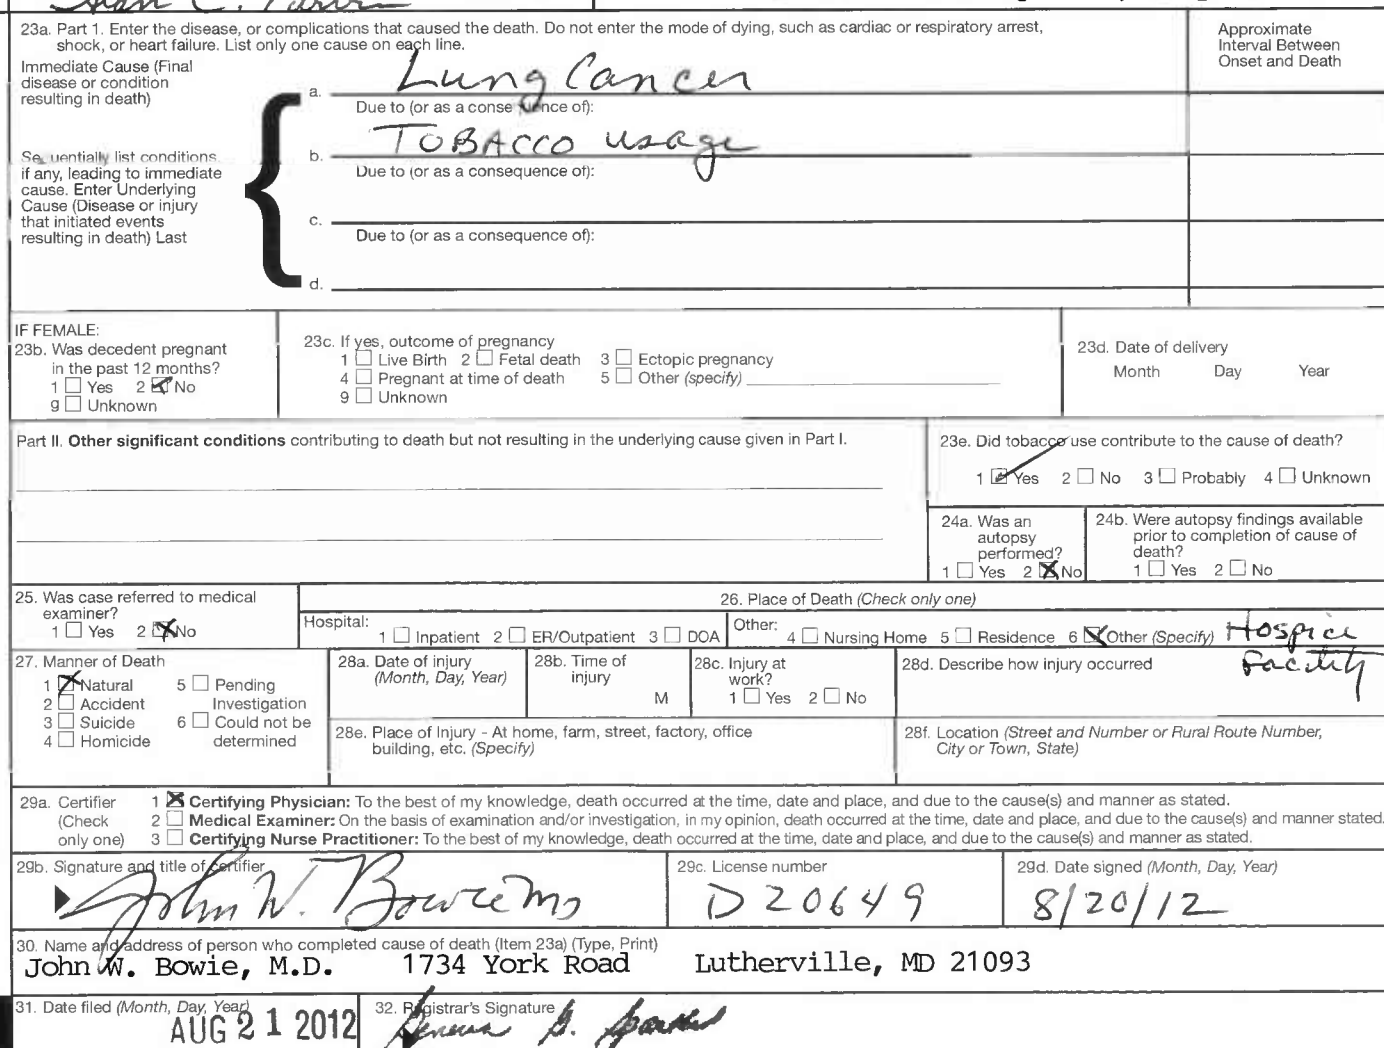 23a. Part 1. Enter the disease, or complications that caused the death. Do not enter the mode of dying, such as cardiac or respiratory arrest,
shock, or heart failure. List only one cause on each line.
Approximate
Interval Between
Onset and Death
Immediate Cause (Final
disease or condition
resulting in death)
a. Lung Cancer
Due to (or as a consequence of):
Sequentially list conditions
if any, leading to immediate
cause. Enter Underlying
Cause (Disease or injury
that initiated events
resulting in death) Last
b. TOBACCO usage
Due to (or as a consequence of):
c.
Due to (or as a consequence of):
d.
IF FEMALE:
23b. Was decedent pregnant
in the past 12 months?
1 Yes 2 No
9 Unknown
23c. If yes, outcome of pregnancy
1 Live Birth 2 Fetal death 3 Ectopic pregnancy
4 Pregnant at time of death 5 Other (specify)
9 Unknown
23d. Date of delivery
Month Day Year
Part II. Other significant conditions contributing to death but not resulting in the underlying cause given in Part I.
23e. Did tobacco use contribute to the cause of death?
1 Yes 2 No 3 Probably 4 Unknown
24a. Was an
autopsy
performed?
1 Yes 2 No
24b. Were autopsy findings available
prior to completion of cause of
death?
1 Yes 2 No
25. Was case referred to medical
examiner?
1 Yes 2 No
26. Place of Death (Check only one)
Hospital:
1 Inpatient 2 ER/Outpatient 3 DOA
Other:
4 Nursing Home 5 Residence 6 Other (Specify) Hospice
Facility
27. Manner of Death
1 Natural 5 Pending
2 Accident Investigation
3 Suicide 6 Could not be
4 Homicide determined
28a. Date of injury
(Month, Day, Year)
28b. Time of
injury
M
28c. Injury at
work?
1 Yes 2 No
28d. Describe how injury occurred
28e. Place of Injury - At home, farm, street, factory, office
building, etc. (Specify)
28f. Location (Street and Number or Rural Route Number,
City or Town, State)
29a. Certifier
(Check
only one)
1 Certifying Physician: To the best of my knowledge, death occurred at the time, date and place, and due to the cause(s) and manner as stated.
2 Medical Examiner: On the basis of examination and/or investigation, in my opinion, death occurred at the time, date and place, and due to the cause(s) and manner stated.
3 Certifying Nurse Practitioner: To the best of my knowledge, death occurred at the time, date and place, and due to the cause(s) and manner as stated.
29b. Signature and title of certifier
John W. Bowie MD
29c. License number
D20649
29d. Date signed (Month, Day, Year)
8/20/12
30. Name and address of person who completed cause of death (Item 23a) (Type, Print)
John W. Bowie, M.D. 1734 York Road Lutherville, MD 21093
31. Date filed (Month, Day, Year)
AUG 21 2012
32. Registrar's Signature